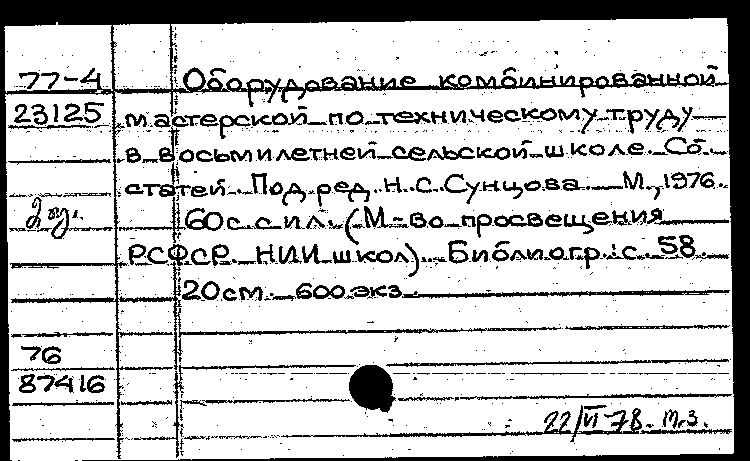 77-4 Оборудование комбинированной
23125 мастерской по техническому труду
в восьмилетней сельской школе. Сб.
статей. Под ред. Н.С. Сунцова М., 1976.
60 с. с ил. (М-во просвещения
РСФСР. НИИ школ). Библиогр.: с. 58.
20 см. 600 экз.
76
87416
22/VI 78. т.з.